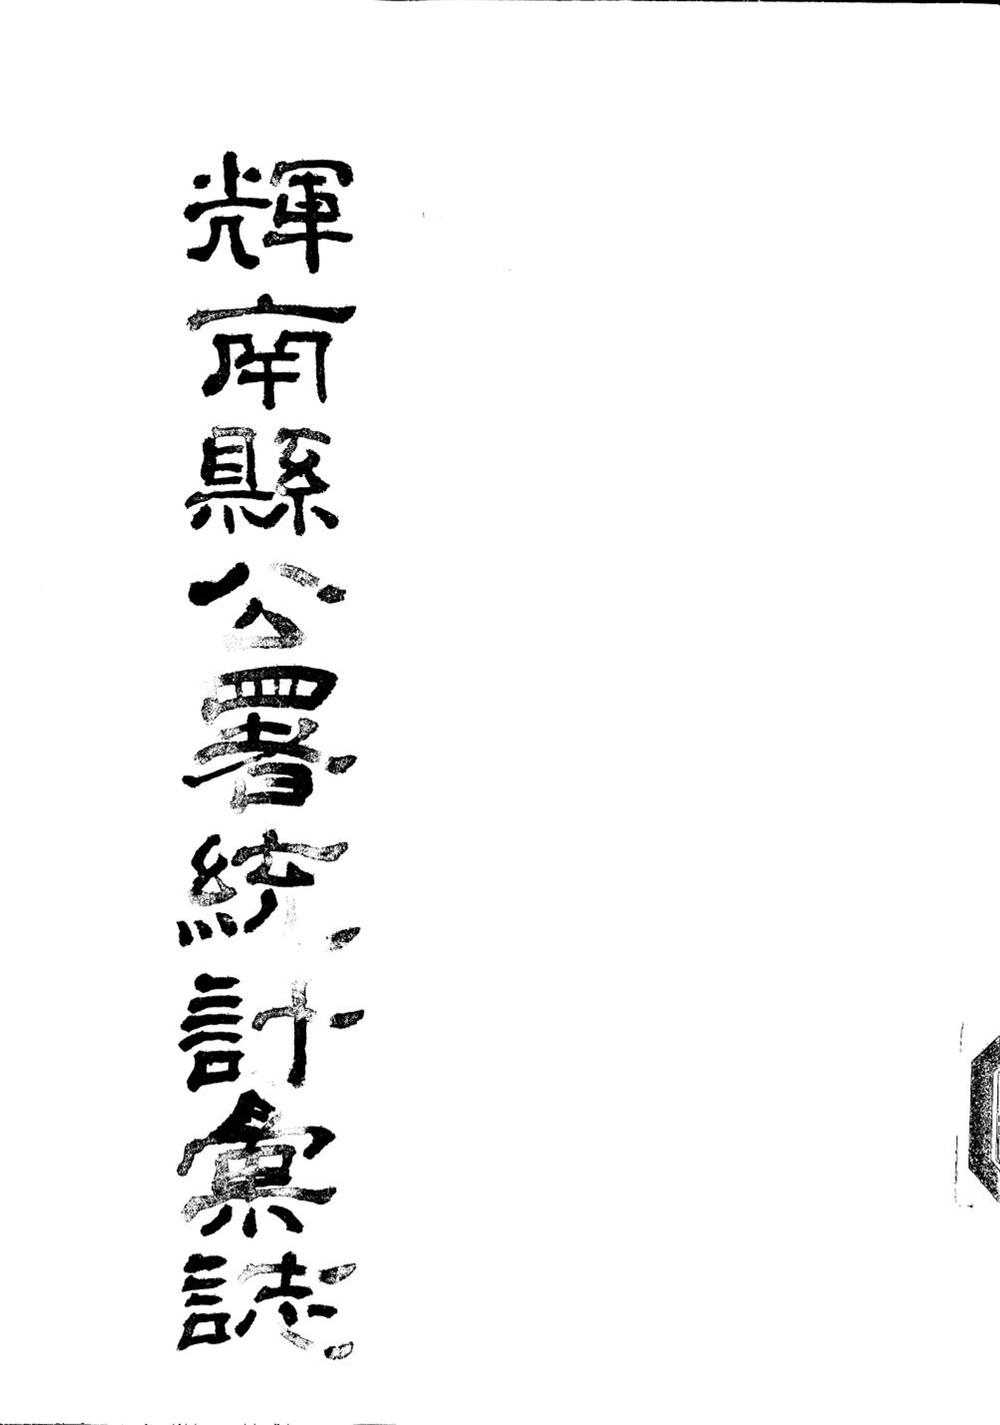 輝南縣公署統計彙誌